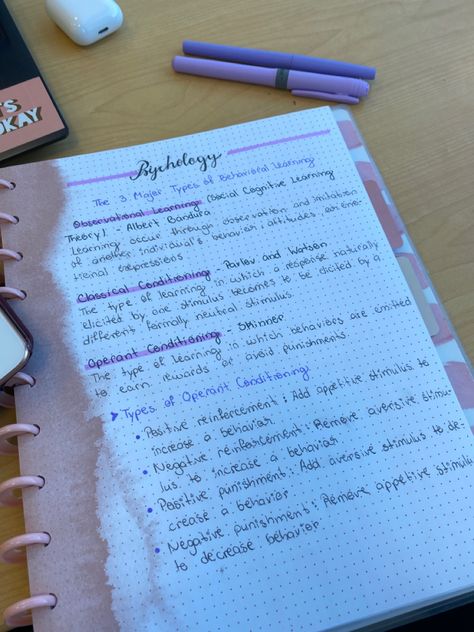 'S
OKAY
Psychology
The 3 Major Types of Behavioral Learning
Observational Learning: (Social Cognitive Learning
Theory) - Albert Bandura
Learning occurs through observation and imitation
of another individual's behavior, attitudes, or emo-
tional expressions
Classical Conditioning - Pavlov and Watson
The type of learning in which a response naturally
elicited by one stimulus becomes to be elicited by a
different, formally neutral stimulus.
Operant Conditioning - Skinner
The type of learning in which behaviors are emitted
to earn rewards or avoid punishments.
➤ Types of Operant Conditioning
• Positive reinforcement: Add appetitive stimulus to
increase a behavior
• Negative reinforcement: Remove aversive stimu-
lus to increase a behavior
• Positive punishment: Add aversive stimulus to de-
crease a behavior
• Negative punishment: Remove appetitive stimulus
to decrease behavior